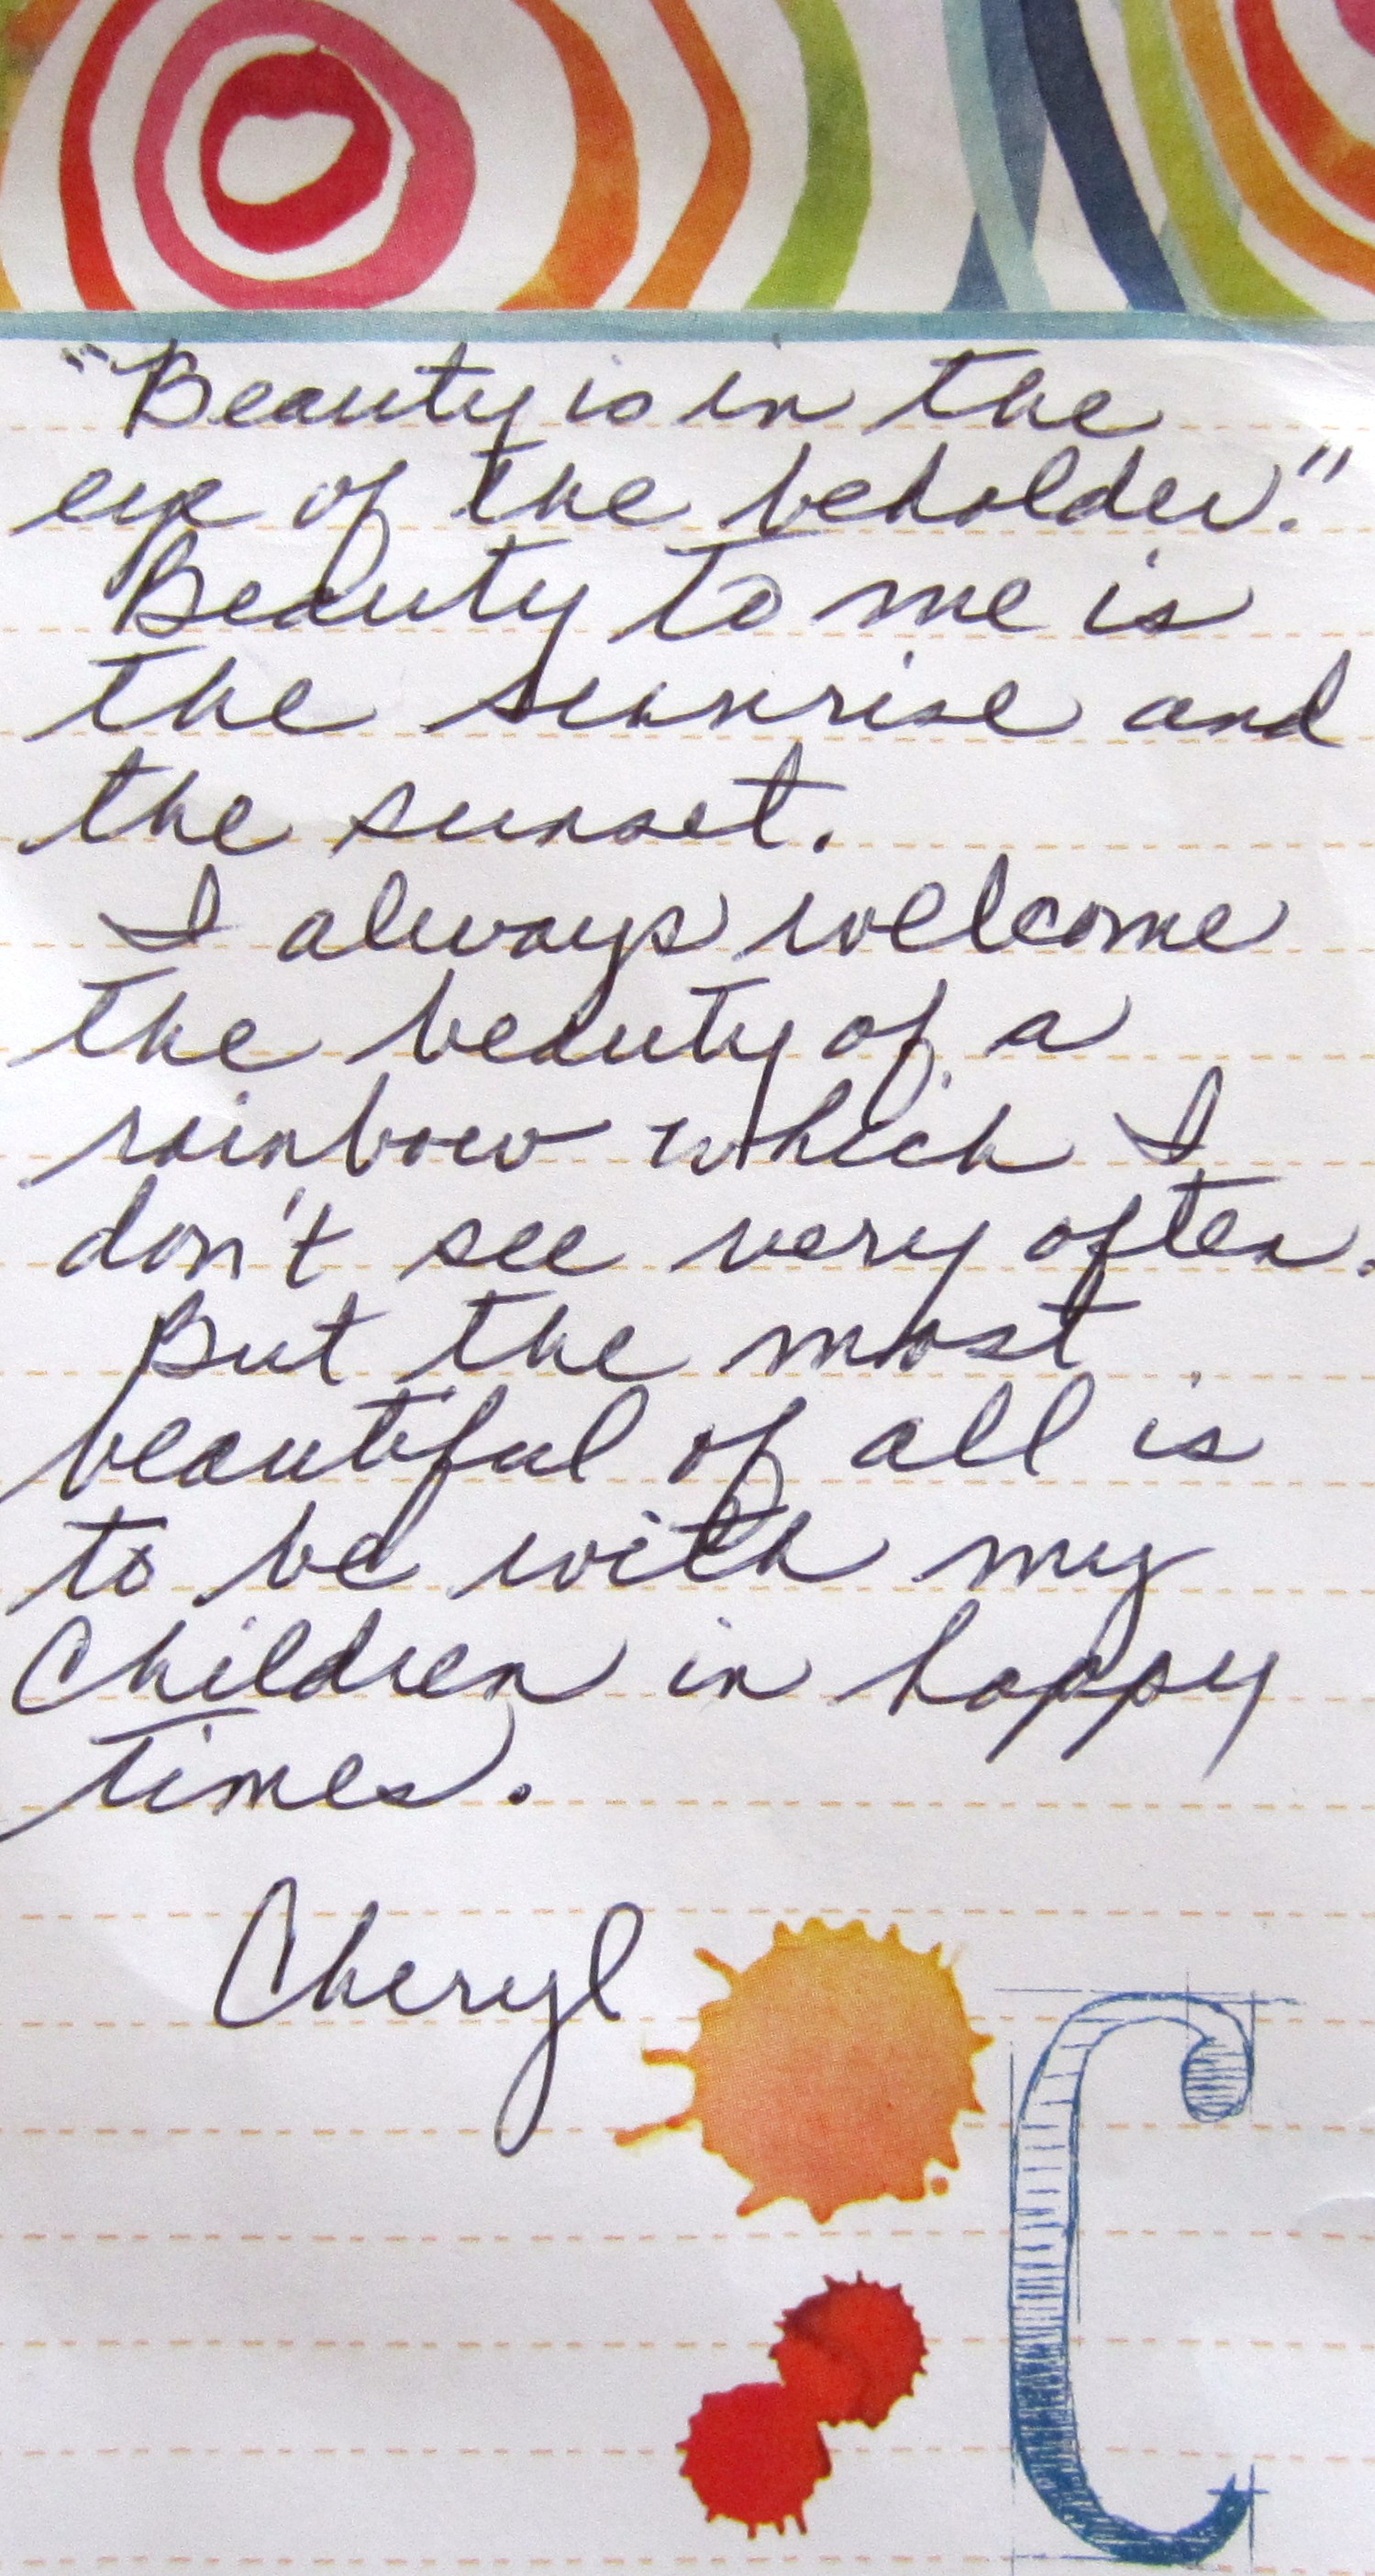 "Beauty is in the
eye of the beholder."
Beauty to me is
the sunrise and
the sunset.
I always welcome
the beauty of a
rainbow which I
don't see very often.
But the most
beautiful of all is
to be with my
Children in happy
times.
Cheryl
C